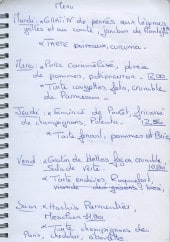 Menu
Mardi: GRATIN de pennes aux légumes
grillés et au comté, jambon de
* TARTE poireaux, curcuma.
Merc: PORC caramélisé, purée
de pommes, potimarron. 12.80
* Tarte courgettes, feta, crumble
de Parmesan
Jeudi: Émincé de Poulet,
de champignons, Polenta.
* Tarte fenouil, pommes et Brie
Vend: Gratin de Blettes façon crumble,
Salade verte. 10.80
* Tarte endives, Roquefort,
Sam: Hachis Parmentier,
Mesclun 11.80
* Tarte champignons de
Paris, cheddar,